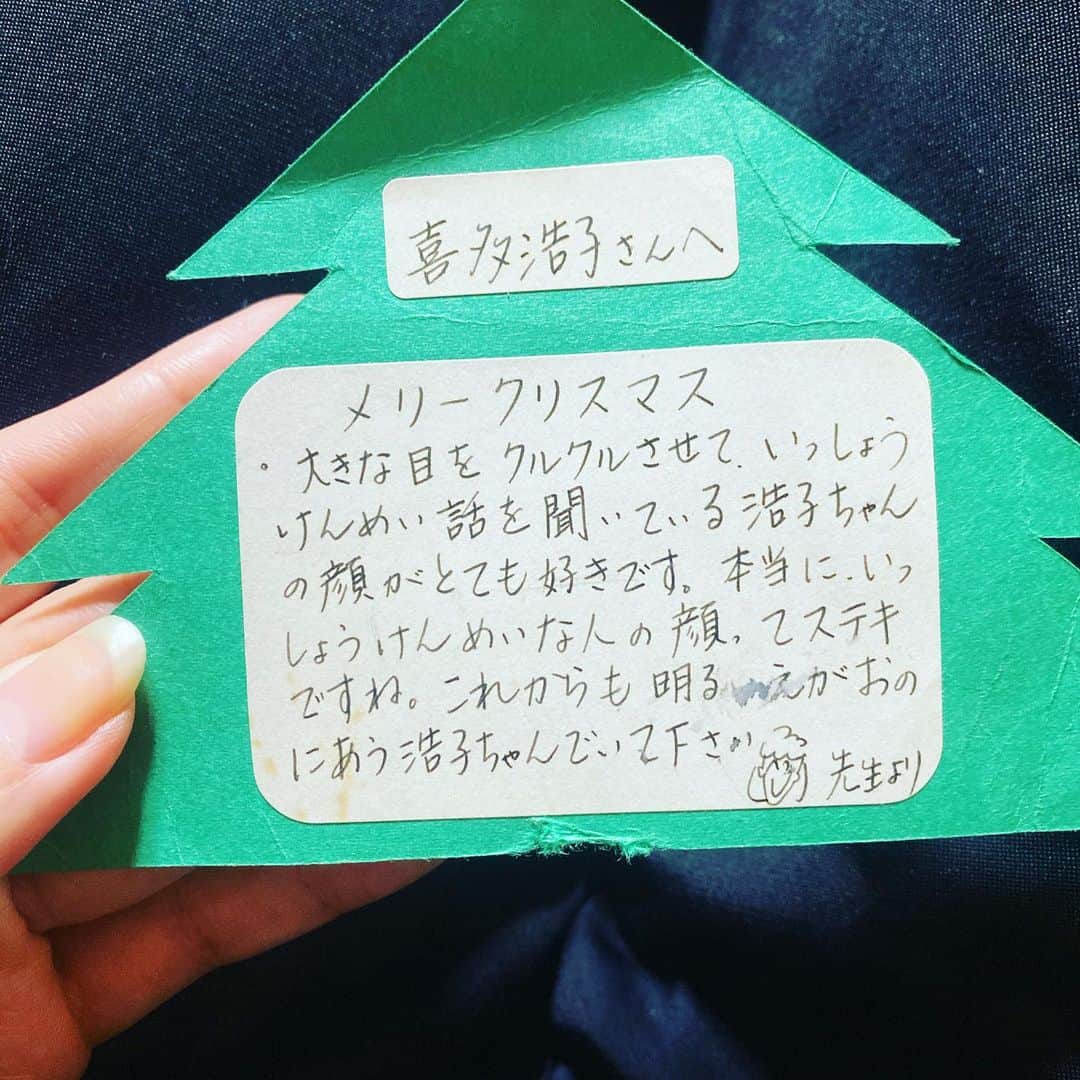 喜多浩子さんへ
メリークリスマス
・大きな目をクルクルさせて、いっしょう
けんめい話を聞いている浩子ちゃん
の顔がとても好きです。本当に、いっ
しょうけんめいな人の顔ってステキ
ですね。これからも明る えがおの
にあう浩子ちゃんでいて下さい
先生より